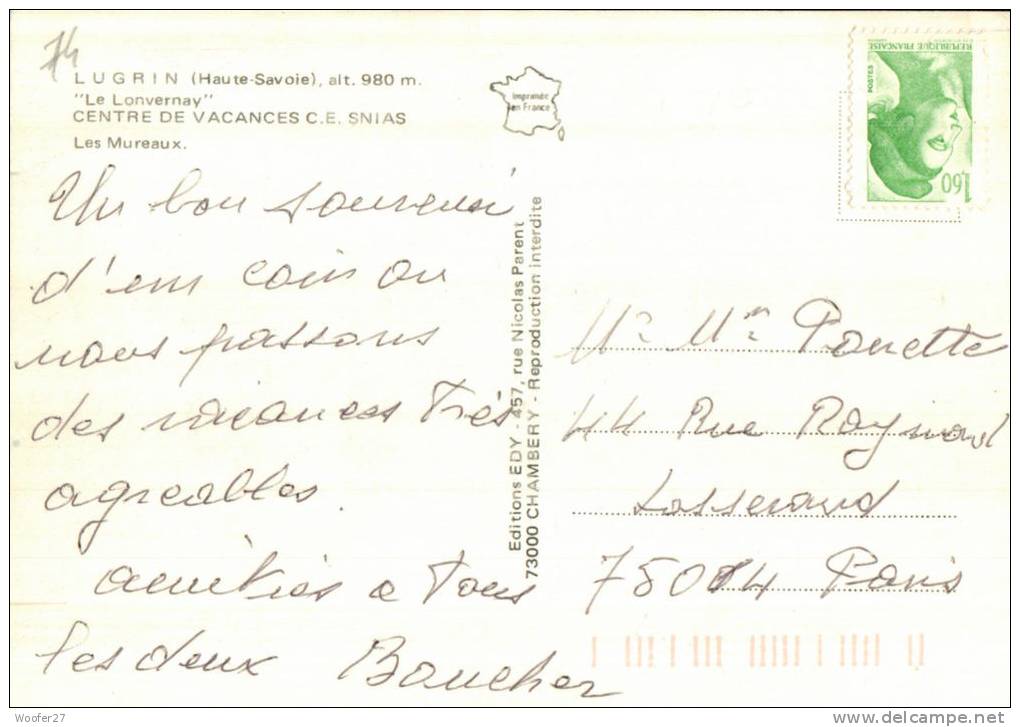 74
LUGRIN (Haute-Savoie), alt. 980 m.
"Le Lonvernay"
CENTRE DE VACANCES C.E. SNIAS
Les Mureaux.
Imprimée
en France
REPUBLIQUE FRANÇAISE
POSTES
1,60
Un bon souvenir
d'un coin ou
nous passons
des vacances très
agreables.
amitiés a tous
les deux Boucher
Editions EDY - 457, rue Nicolas Parent
73000 CHAMBERY - Reproduction interdite
Mr Mme Ponette
44 Rue Raymond
Losserand
75014 Paris
Woofer27
www.delcampe.net